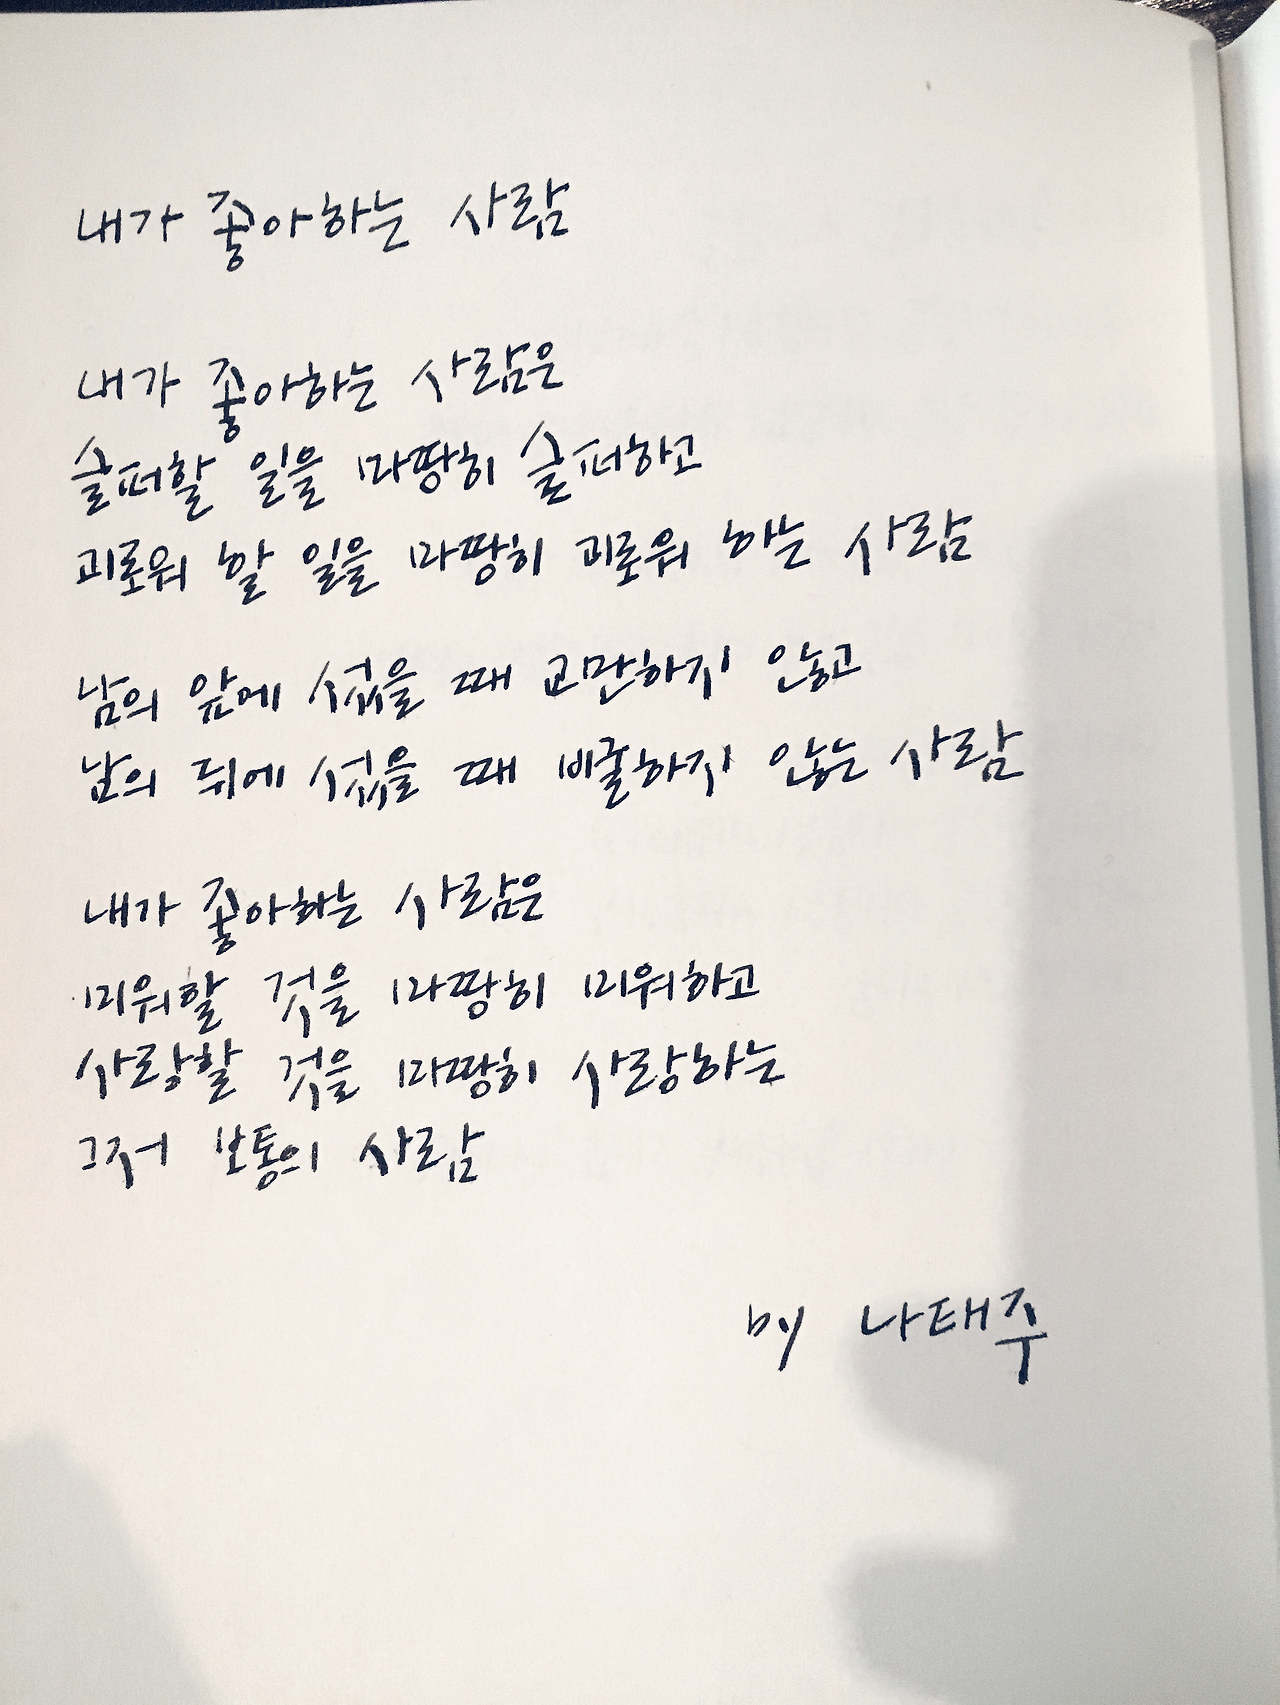 내가 좋아하는 사람
내가 좋아하는 사람은
슬퍼할 일을 마땅히 슬퍼하고
괴로워 할 일을 마땅히 괴로워 하는 사람
남의 앞에 섰을 때 교만하지 않고
남의 뒤에 섰을 때 비굴하지 않는 사람
내가 좋아하는 사람은
미워할 것을 마땅히 미워하고
사랑할 것을 마땅히 사랑하는
그저 보통의 사람
by 나태주